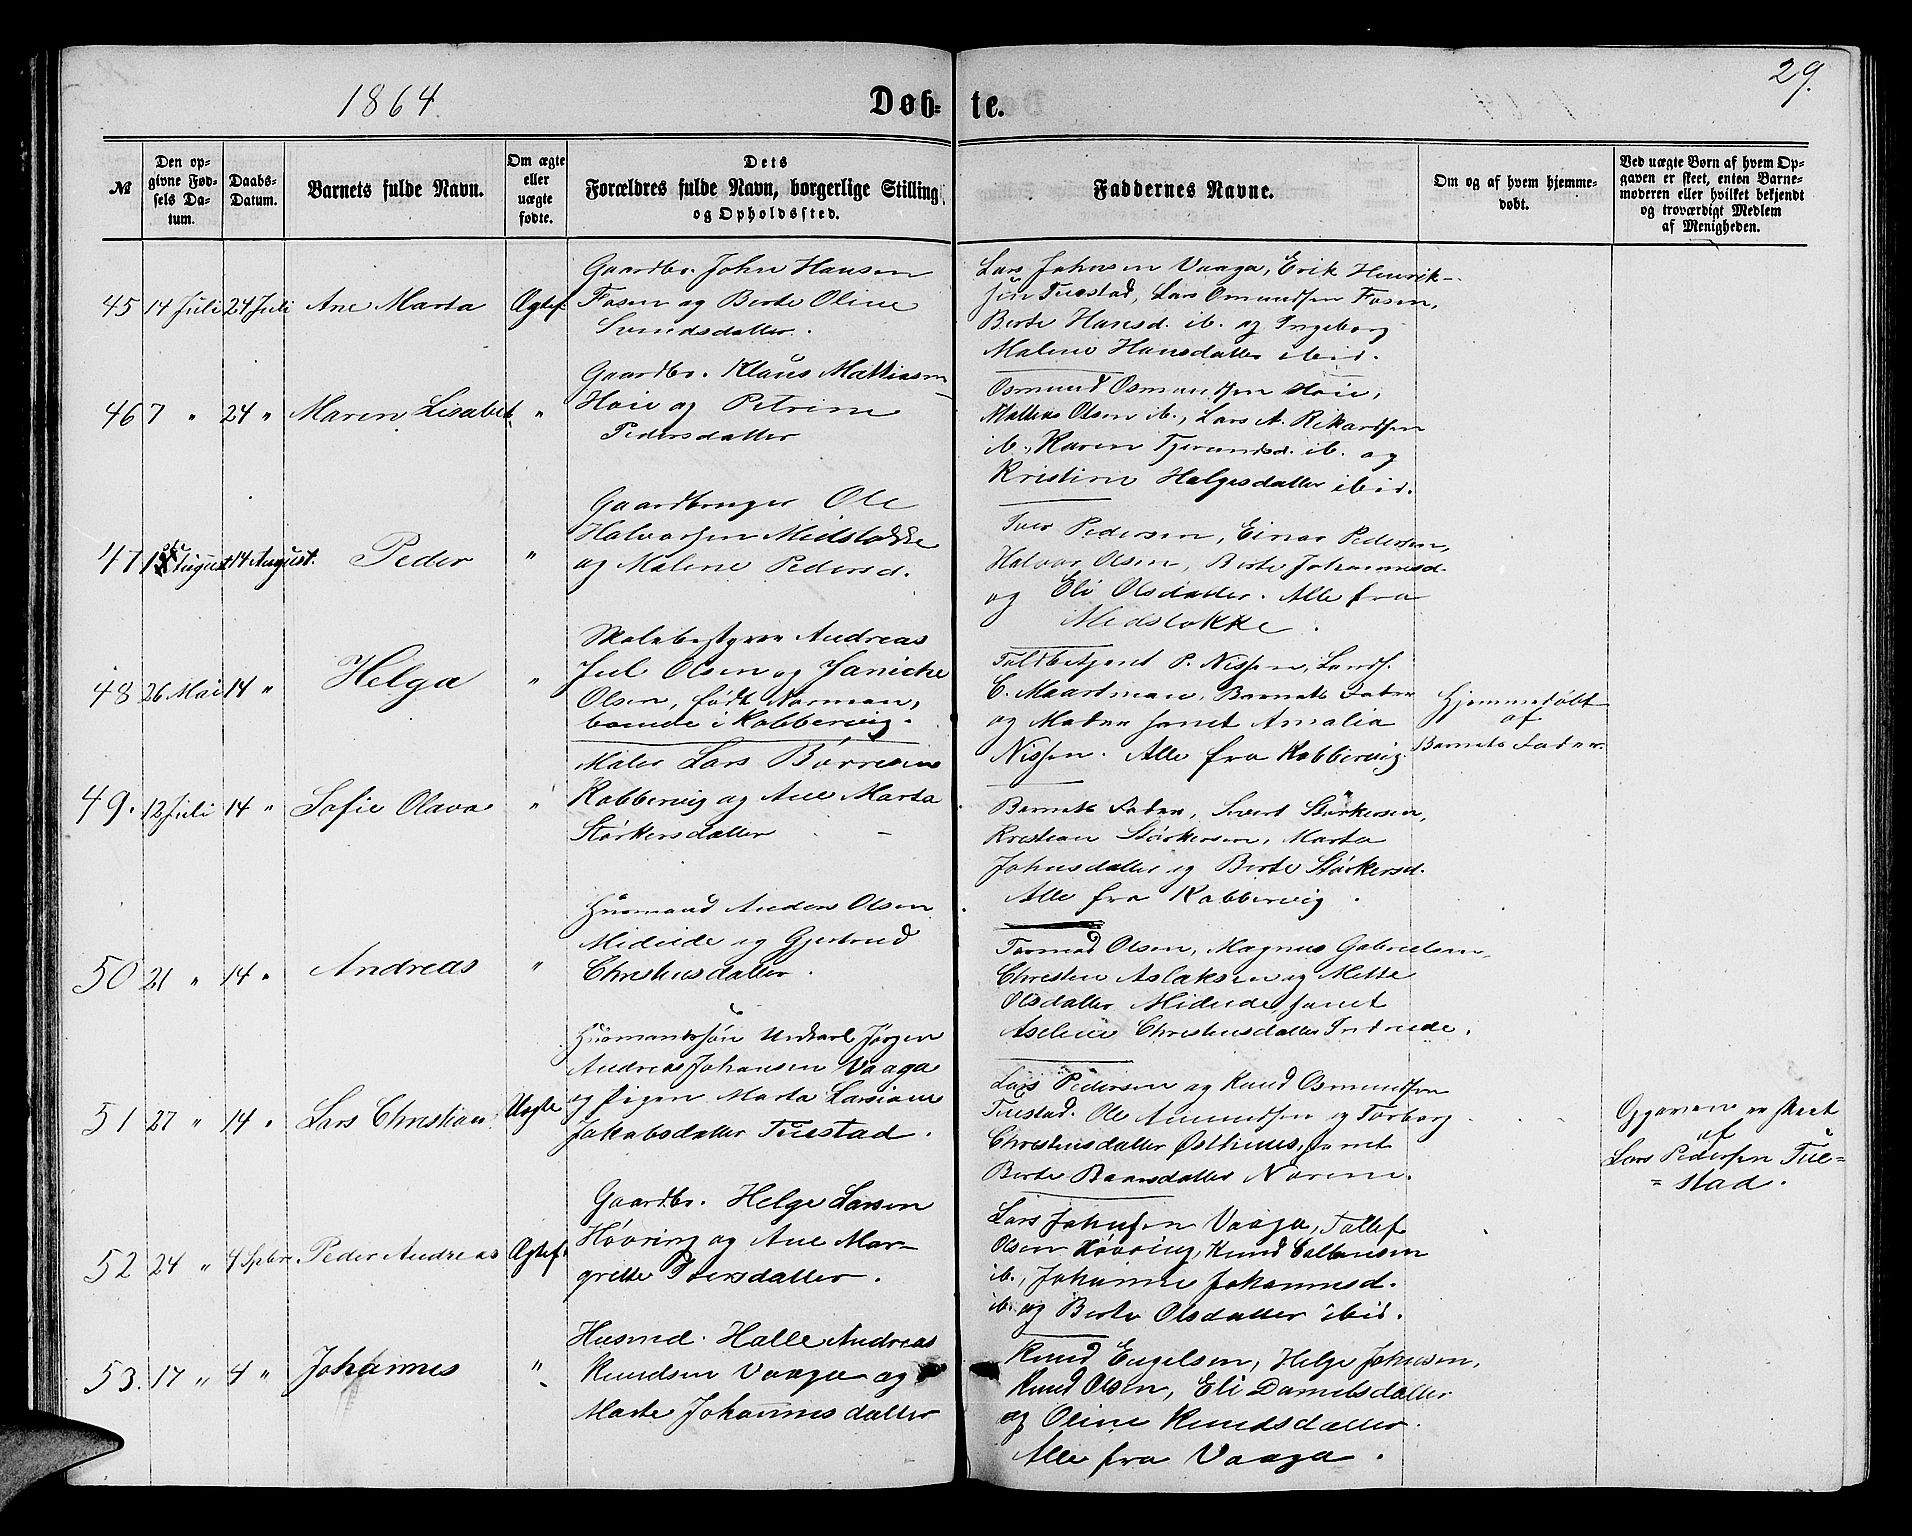 1864.
Døb-
te.
29.
№
Den op-
givne Fød-
sels Da-
tum.
Daabs-
Datum.
Barnets fulde Navn.
Om ægte
eller
uægte
fødte.
Dets
Forældres fulde Navn, borgerlige Stilling
og Opholdssted.
Faddernes Navne.
Om og af hvem hjemme-
døbt.
Ved uægte Børn af hvem Op-
gaven er skeet, enten Barne-
moderen eller hvilket bekjendt
og troværdigt Medlem
af Menigheden.
45 14 Juli 24 Juli Ane Marta Ægtef.
Gaardbr. John Hansen
Fosen og Berte Oline
Svendsdatter.
Lars Johnsen Vaaga, Erik Henrik-
sen Tuestad, Lars Osmundsen Fosen,
Berte Hansd. ib. og Ingeborg
Malene Hansdatter ibid.
46 7 " 24 " Maren Lisabet "
Gaardbr. Klaus Mathiasen
Høie og Petrine
Pedersdatter
Osmund Osmundsen Høie,
Mathias Olsen ib., Lars A. Rikardsen
ib., Karen Tjerandsd. ib. og
Kristine Helgesdatter ibid.
47 August 14 August. Peder "
Gaardbruger Ole
Halvorsen Midstokke
og Malene Pedersd.
Iver Pedersen, Einar Pedersen,
Halvor Olsen, Berte Johannesd.
og Eli Olsdatter. Alle fra
Midstokke.
48 26 Mai 14 " Helga "
Skolebestyrer Andreas
Jul Olsen og Janicke
Olsen, født Norman,
boende i Kobbervig.
Toldbetjent P. Nissen, Landh.
C. Maartman, Barnets Fader
og Moder samt Amalia
Nissen. Alle fra Kobbervig
Hjemmedøbt
af
Barnets Fader.
49. 12 Juli 14 " Sofie Olava "
Maler Lars Børresen
Kobbervig og Ane Marta
Størkersdatter
Barnets Fader, Sivert Størkersen,
Kristian Størkersen, Marta
Johnsdatter og Berte Størkersd.
Alle fra Kobbervig.
50 21 " 14 " Andreas "
Husmand Anders Olsen
Mideide og Gjertrud
Christensdatter.
Tormod Olsen, Magnus Gabrielsen,
Christen Aslaksen og Mette
Olsdatter Mideide samt
Aseline Christensdatter Indreeide.
51 27 " 14 " Lars Christian Uægte
Husmandssøn Ungkarl Jørgen
Andreas Johansen Vaaga
og Pigen Marta Larsiane
Jakobsdatter Tuestad.
Lars Pedersen og Knud Osmundsen
Tuestad. Ole Amundsen og Torborg
Christensdatter Østhuus, samt
Berte Baarsdatter Norem.
Opgaven er skeet
af
Lars Pedersen Tue=
=stad.
52 24 " 4 Spbr. Peder Andreas Ægtef.
Gaardbr. Helge Larsen
Høvring og Ane Mar-
grethe Iversdatter.
Lars Johnsen Vaaga, Tollef
Olsen Høvring, Knud
ib., Johanne Johannesd.
ib. og Berte Olsdatter ibid.
53. 17 " 4 " Johannes "
Husmd. Halle Andreas
Knudsen Vaaga og
Marte Johannesdatter
Knud Engelsen, Helge Johnsen,
Knud Olsen, Eli Danielsdatter
og Oline Knudsdatter.
Alle fra Vaaga.